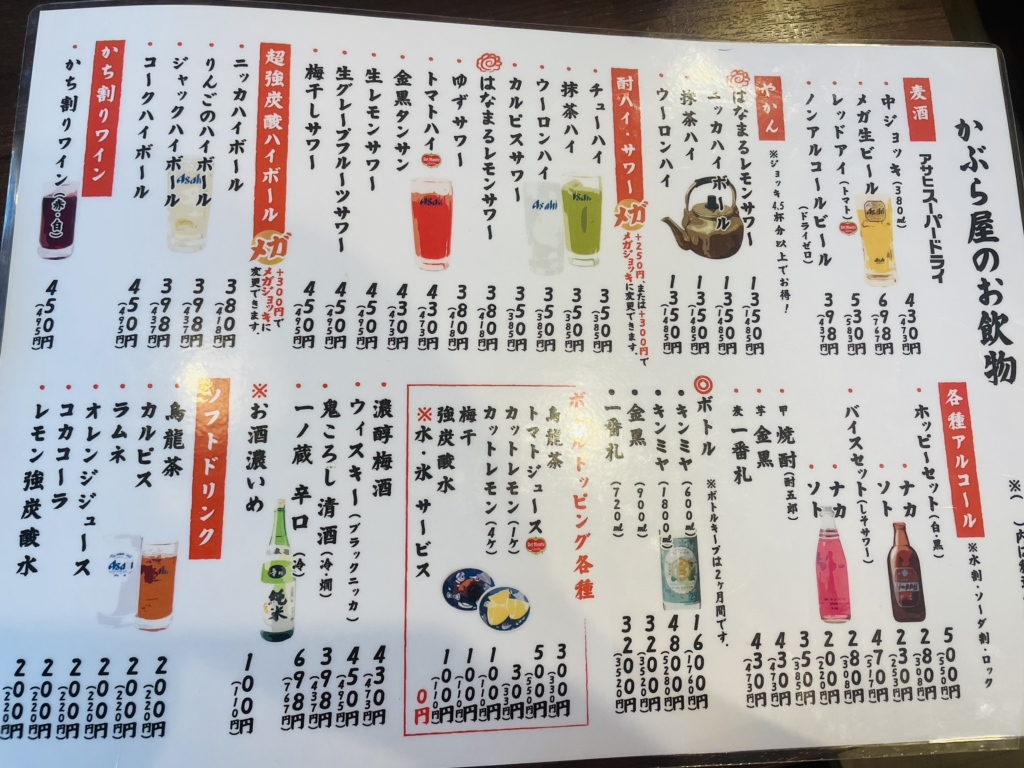 かぶら屋のお飲物
※( )内は税込
麦酒
アサヒスーパードライ
中ジョッキ(380㎖) 430円(473円)
メガ生ビール 698円(767円)
レッドアイ(トマト) 530円(583円)
ノンアルコールビール(ドライゼロ) 398円(437円)
やかん
※ジョッキ4.5杯分以上でお得!
はなまるレモンサワー 1350円(1485円)
ニッカハイボール 1350円(1485円)
抹茶ハイ 1350円(1485円)
ウーロンハイ 1350円(1485円)
酎ハイ・サワー
メガ
+250円、または+300円で
メガジョッキに変更できます。
チューハイ 350円(385円)
抹茶ハイ 350円(385円)
ウーロンハイ 350円(385円)
カルピスサワー 350円(385円)
はなまるレモンサワー 380円(418円)
ゆずサワー 380円(418円)
トマトハイ 430円(473円)
金黒タンサン 430円(473円)
生レモンサワー 450円(495円)
生グレープフルーツサワー 450円(495円)
梅干しサワー 450円(495円)
超強炭酸ハイボール
メガ
+300円で
メガジョッキに
変更できます。
ニッカハイボール 380円(418円)
りんごのハイボール 398円(437円)
ジャックハイボール 398円(437円)
コークハイボール 450円(495円)
かち割りワイン
かち割りワイン(赤・白) 450円(495円)
各種アルコール
※水割・ソーダ割・ロック
ホッピーセット(白・黒) 500円(550円)
ナカ 280円(308円)
ソト 230円(253円)
バイスセット(しそサワー) 470円(517円)
ナカ 280円(308円)
ソト 200円(220円)
甲 焼酎(酎五郎) 350円(385円)
芋 金黒 430円(473円)
麦 一番札 430円(473円)
◎ボトル
※ボトルキープは2ヶ月間です。
キンミヤ(600㎖) 1600円(1760円)
キンミヤ(1800㎖) 4800円(5280円)
金黒(900㎖) 3200円(3520円)
一番札(720㎖) 3200円(3520円)
ボトルトッピング各種
烏龍茶 300円(330円)
トマトジュース 500円(550円)
カットレモン(1ケ) 30円(33円)
カットレモン(4ケ) 100円(110円)
梅干 100円(110円)
強炭酸水 100円(110円)
※水・氷 サービス 0円
濃醇梅酒 430円(473円)
ウィスキー(ブラックニッカ) 450円(495円)
鬼ころし 清酒(冷・燗) 398円(437円)
一ノ蔵 辛口(冷) 698円(767円)
※お酒濃いめ 100円(110円)
純米
ソフトドリンク
烏龍茶 200円(220円)
カルピス 200円(220円)
ラムネ 200円(220円)
オレンジジュース 200円(220円)
コカコーラ 200円(220円)
レモン強炭酸水 200円(220円)
Asahi
Asahi
Asahi
Asahi